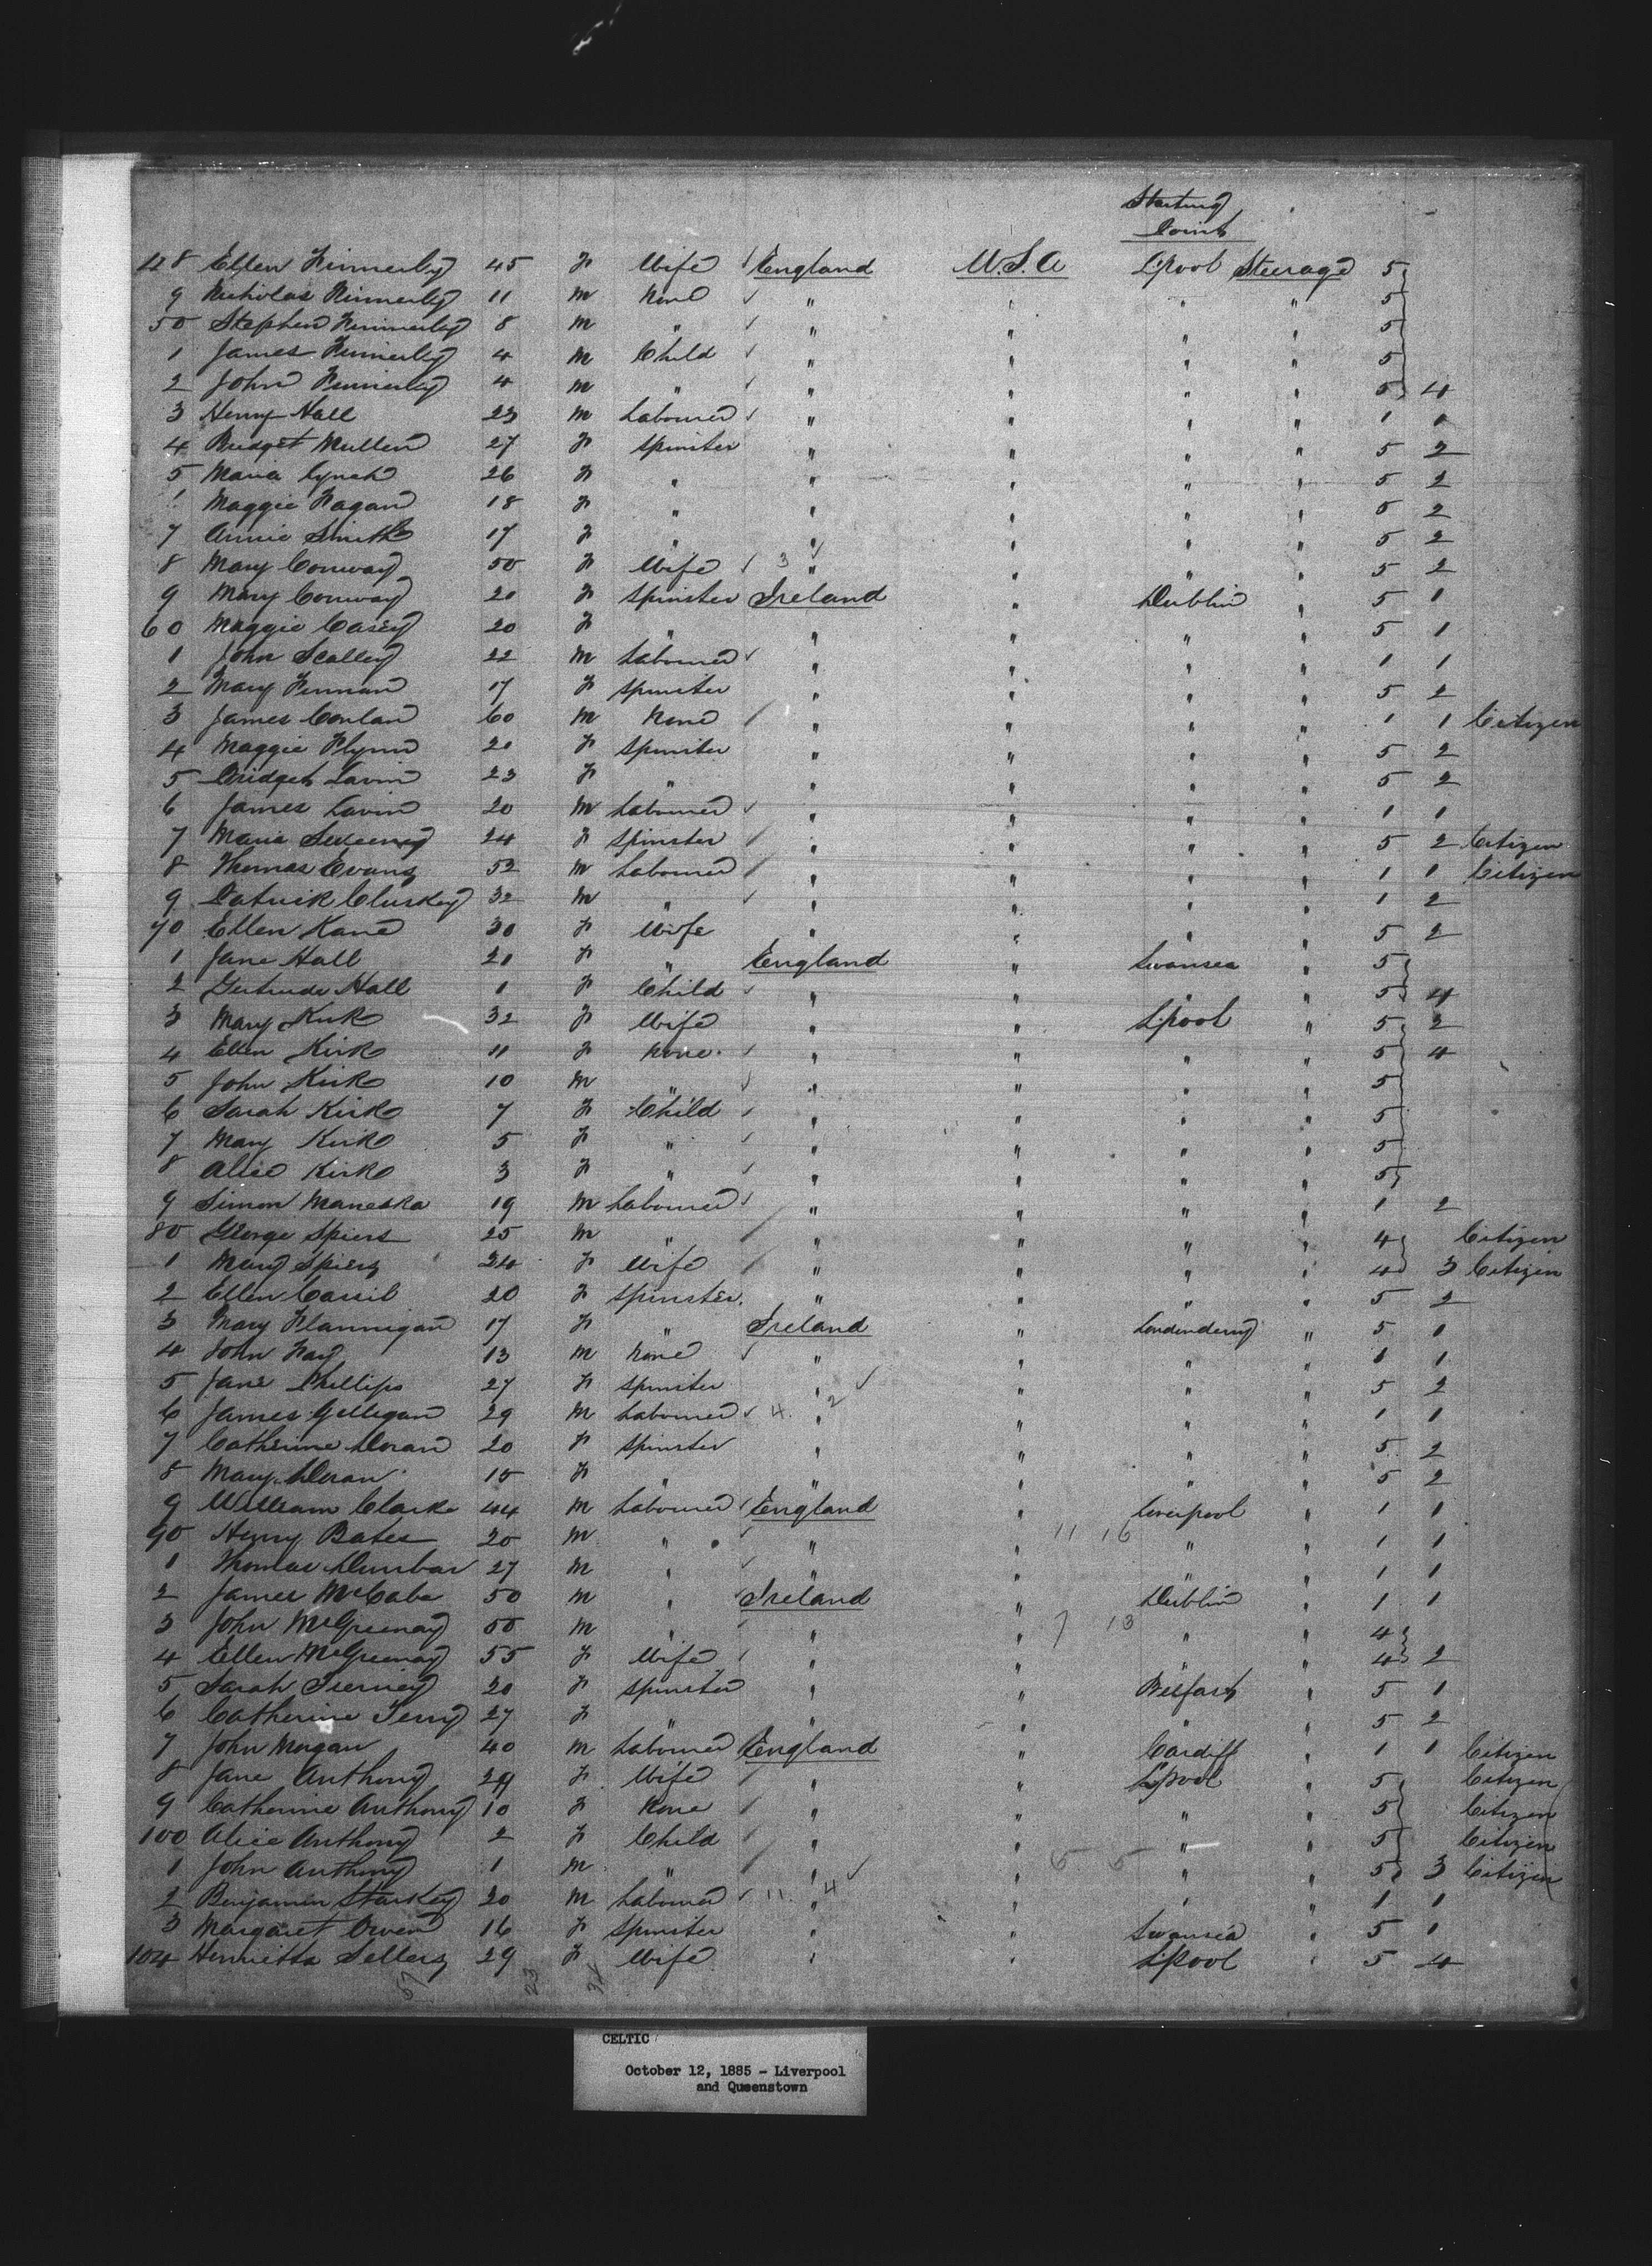 Starting
Point
48 Ellen Finnerly 45 F Wife England U.S.A L'pool Steerage 5
9 Nicholas Finnerly 11 M None " " " " 5
50 Stephen Finnerly 8 M " " " " " 5
1 James Finnerly 4 M Child " " " " 5
2 John Finnerly 4 M " " " " " 5 4
3 Henry Hall 23 M Labourer " " " " 1 1
4 Bridget Mullen 27 F Spinster " " " " 5 2
5 Maria Lynch 26 F " " " " " 5 2
Maggie Fagan 18 F " " " " " 5 2
7 Annie Smith 17 F " " " " " 5 2
8 Mary Conway 50 F Wife 3 " " " " 5 2
9 Mary Conway 20 F Spinster Ireland " Dublin " 5 1
60 Maggie Casey 20 F " " " " " 5 1
1 John Scalley 22 M Labourer " " " " 1 1
2 Mary Fennan 17 F Spinster " " " " 5 2
3 James Conlan 60 M None " " " " 1 1 Citizen
4 Maggie Flynn 20 F Spinster " " " " 5 2
5 Bridget Lavin 23 F " " " " " 5 2
6 James Lavin 20 M Labourer " " " " 1 1
7 Maria Sweeney 24 F Spinster " " " " 5 2 Citizen
8 Thomas Evans 52 M Labourer " " " " 1 1 Citizen
9 Patrick Cluskey 32 M " " " " " 1 2
70 Ellen Kane 30 F Wife " " " " 5 2
1 Jane Hall 21 F " England " Swansea " 5
2 Gertrude Hall 1 F Child " " " " 5 4
3 Mary Kirk 32 F Wife " " L'pool " 5 2
4 Ellen Kirk 11 F None " " " " 5 4
5 John Kirk 10 M " " " " " 5
6 Sarah Kirk 7 F Child " " " " 5
7 Mary Kirk 5 F " " " " " 5
8 Alice Kirk 3 F " " " " " 5
9 Simon Maneska 19 M Labourer " " " " 1 2
80 George Spiers 25 M " " " " " 4 Citizen
1 Mary Spiers 24 F Wife " " " " 4 3 Citizen
2 Ellen Cassil 20 F Spinster " " " " 5 2
3 Mary Flannigan 17 F " Ireland " Londonderry " 5 1
4 John Fay 13 M None " " " " 1 1
5 Jane Phillips 27 F Spinster " " " " 5 2
6 James Gilligan 29 M Labourer 4 2 " " " " 1 1
7 Catherine Doran 20 F Spinster " " " " 5 2
8 Mary Doran 15 F " " " " " 5 2
9 William Clarke 44 M Labourer England " Liverpool " 1 1
90 Henry Bates 20 M " " " 11 16 " " 1 1
1 Thomas Dunbar 27 M " " " " " 1 1
2 James McCabe 50 M " Ireland " Dublin " 1 1
3 John McGreenay 55 M " " " 7 13 " " 4
4 Ellen McGreenay 55 F Wife " " " " 4 2
5 Sarah Tierney 20 F Spinster " " Belfast " 5 1
6 Catherine Terry 27 F " " " " " 5 2
7 John Morgan 40 M Labourer England " Cardiff " 1 1 Citizen
8 Jane Anthony 29 F Wife " " L'pool " 5 Citizen
9 Catherine Anthony 10 F None " " " " 5 Citizen
100 Alice Anthony 2 F Child " " " " 5 Citizen
1 John Anthony 1 M " " " 5 5 " " 5 3 Citizen
2 Benjamin Starkey 20 M Labourer 11 4 " " " " 1 1
3 Margaret Owen 16 F Spinster " " Swansea " 5 1
104 Henrietta Sellers 29 F Wife " " L'pool " 5 4
CELTIC
October 12, 1885 - Liverpool
and Queenstown